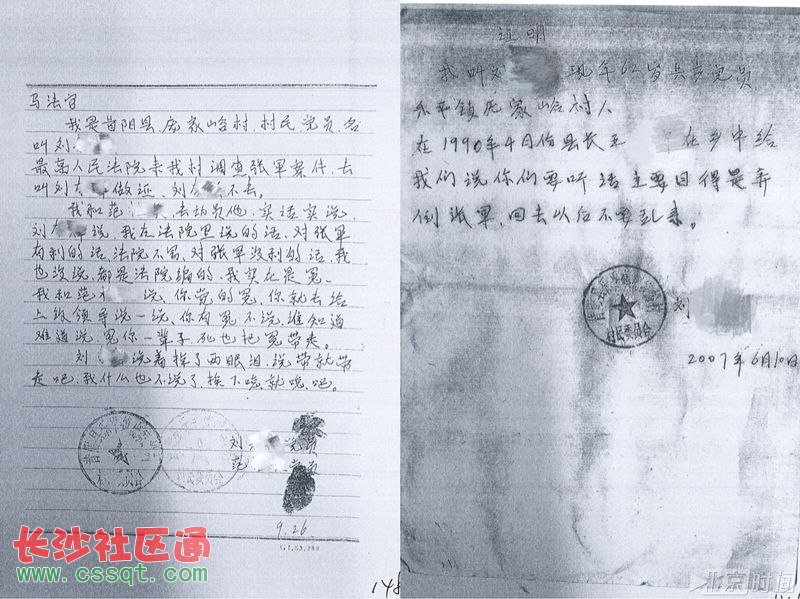 马法官
我是昔阳县庞家峪村,村民党员,名
叫刘
最高人民法院来我村调查张军案件,去
叫刘 做证,刘 不去。
我和范 去动员他,实话实说,
刘 说,我在法院里说的话,对张军
有利的话,法院不写,对张军没利的话,我
也没说,都是法院编的,我实在是冤。
我和范 说,你觉的冤,你就去给
上级领导说一说,你有冤不说,谁知道
难道说,冤你一辈子,死也把冤带走。
刘 说着挥了两眼泪,说带就带
走吧,我什么也不说了
刘 党员
范 党员
9.26
148
证明
我叫刘 现年62岁共产党员
乐平镇庞家峪村人
在1990年4月份县长王 在乡中给
我们说你们要听话主要目得是弄
倒张军,回去以后不要乱来。
村民委员会
刘
2007年6月10日
长沙社区通
www.cssqt.com
北京时间